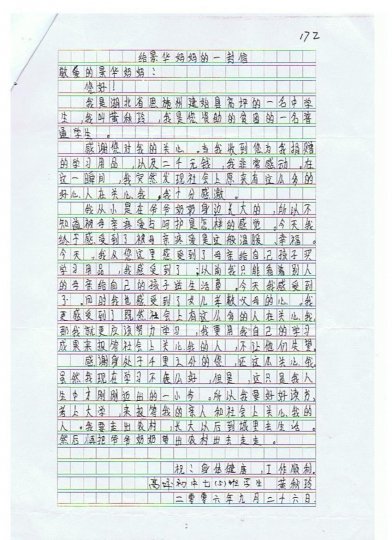 172
给景华妈妈的一封信
敬爱的景华妈妈：
您好！
我是湖北省恩施州建始县高坪的一名中学
生，我叫黄秋玲，我是您资助的贫困的一名普
通学生。
感谢您对我的关心。当我收到您为我捐赠
的学习用品，以及二千元钱，我非常感动。在
这一瞬间，我突然发现社会上原来有这么多的
好心人在关心我。我十分感激。
我从小是在爷爷奶奶身边长大的，所以不
知道被母亲疼爱呵护是怎样的感觉。今天我
终于感受到了被母亲疼爱是这般温暖、幸福。
今天，我从您这里感受到了母亲给自己孩子买
学习用品，我感受到了。从前我只能看着别人
的母亲给自己的孩子送生活费。今天我感受到
了。同时我也感受到了女儿孝敬父母的心。我
更感受到了既然社会上有这么多的人在关心我，
那我就更应该努力学习，我要用我自己的学习
成果来报答社会上关心我的人，不让他们失望。
感谢身处千里之外的您，还这么关心我。
虽然我现在学习不怎么好，但是，这只是我人
生中才刚刚迈出的一小步。所以我要好好读书，
考上大学，来报答我的亲人和社会上关心我的
人。我要走出农村，长大以后到城里去生活。
然后，再把爷爷奶奶带出农村出去走走。
祝：身体健康，工作顺利
高坪初中七(5)班学生 黄秋玲
二零零六年九月二十六日